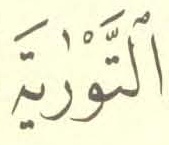 ٱلتَّوْرَٰيةَ